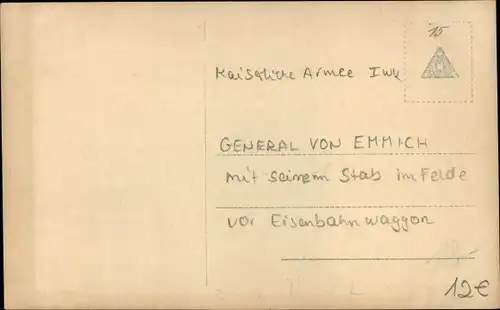 15
Kaiserliche Armee I wk
GENERAL VON EMMICH
mit seinem Stab im Felde
vor Eisenbahnwaggon
12€